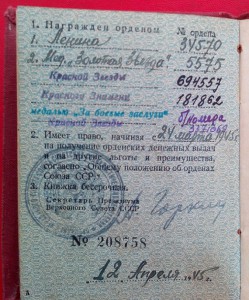 1. Награжден орденом № ордена
1. Ленина 34570
2. Мед. „Золотая Звезда" 5575
Красной Звезды 694557
Красного Знамени 181862
медалью „За боевые заслуги" б/номера
Красной Звезды
2. Имеет право, начиная с
24 марта 1945 г.
на получение орденских денежных выдач
и на другие льготы и преимущества,
согласно „Общему положению об орденах
Союза ССР."
3. Книжка бессрочная.
Секретарь Президиума
Верховного Совета СССР
Горкин
№ 208758
12 Апреля 1945 г.